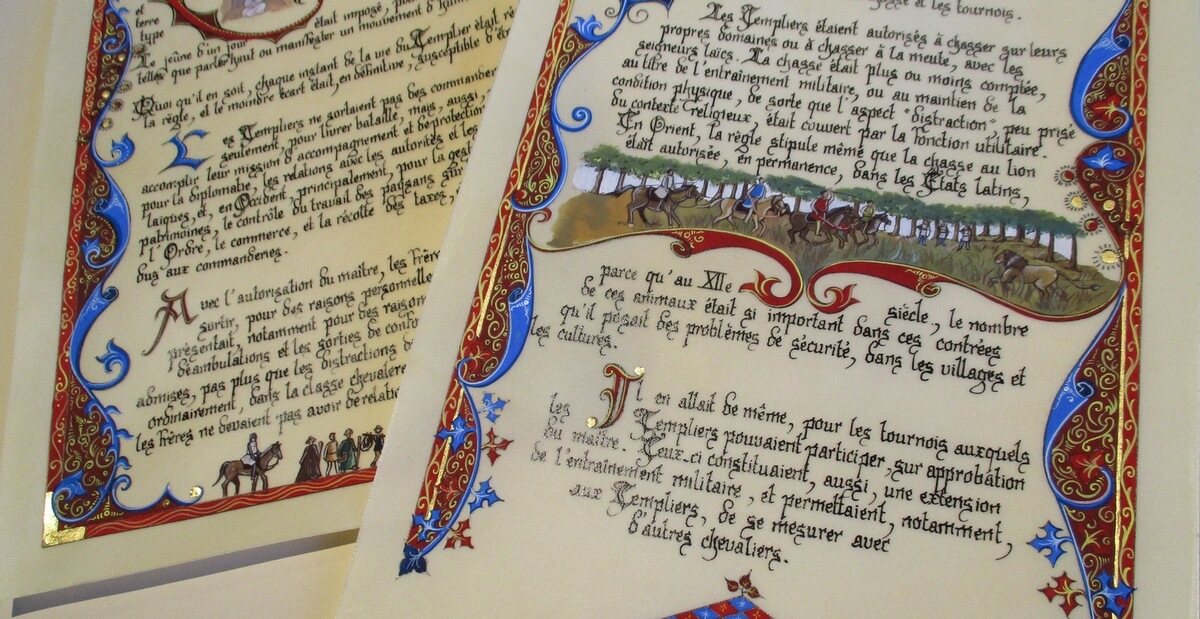 et
terre
type
était imposé, pour
Le jeûne d'un jour
telles que parler haut ou manifester un mouvement d'hum
Quoi qu'il en soit, chaque instant de la vie du Templier était ré
la règle, et le moindre écart était, en définitive, susceptible d'êt
Les Templiers ne sortaient pas des commander
seulement, pour livrer bataille, mais, aussi,
accomplir leur mission d'accompagnement et de protection
pour la diplomatie, les relations avec les autorités et les
laïques, et, en Occident, principalement, pour la gest
patrimoines, le contrôle du travail des paysans sur
l'Ordre, le commerce, et la récolte des taxes,
dus aux commanderies.
Avec l'autorisation du maître, les frère
sortir, pour des raisons personnelle
présentait, notamment pour des raison
déambulations et les sorties de confo
admises, pas plus que les distractions d
ordinairement, dans la classe chevalere
les frères ne devaient pas avoir de relatio
et les tournois.
Les Templiers étaient autorisés à chasser sur leurs
propres domaines ou à chasser à la meute, avec les
seigneurs laïcs. La chasse était plus ou moins comptée,
au titre de l'entraînement militaire, ou au maintien de la
condition physique, de sorte que l'aspect "distraction", peu prisé
du contexte religieux, était couvert par la fonction utilitaire.
En Orient, la règle stipule même que la chasse au lion
était autorisée, en permanence, dans les États latins,
parce qu'au XIIe siècle, le nombre
de ces animaux était si important dans ces contrées
qu'il posait des problèmes de sécurité, dans les villages et
les cultures.
Il en allait de même, pour les tournois auxquels
les Templiers pouvaient participer, sur approbation
du maître. Ceux-ci constituaient, aussi, une extension
de l'entraînement militaire, et permettaient, notamment,
aux Templiers, de se mesurer avec
d'autres chevaliers.